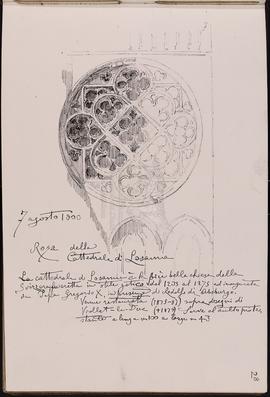 7 agosto 1900
Rosa della
Cattedrale di Losanna
La cattedrale di Losanna è la più bella chiesa della
Svizzera in stile gotico dal 1203 al 1275 ed inaugurata
da Papa Gregorio X, in presenza di Rodolfo di Absburgo.
Venne restaurata (1875-) sopra disegni di
Viollet-le-Duc (+1879).
è lunga m. 100 e larga m.
28